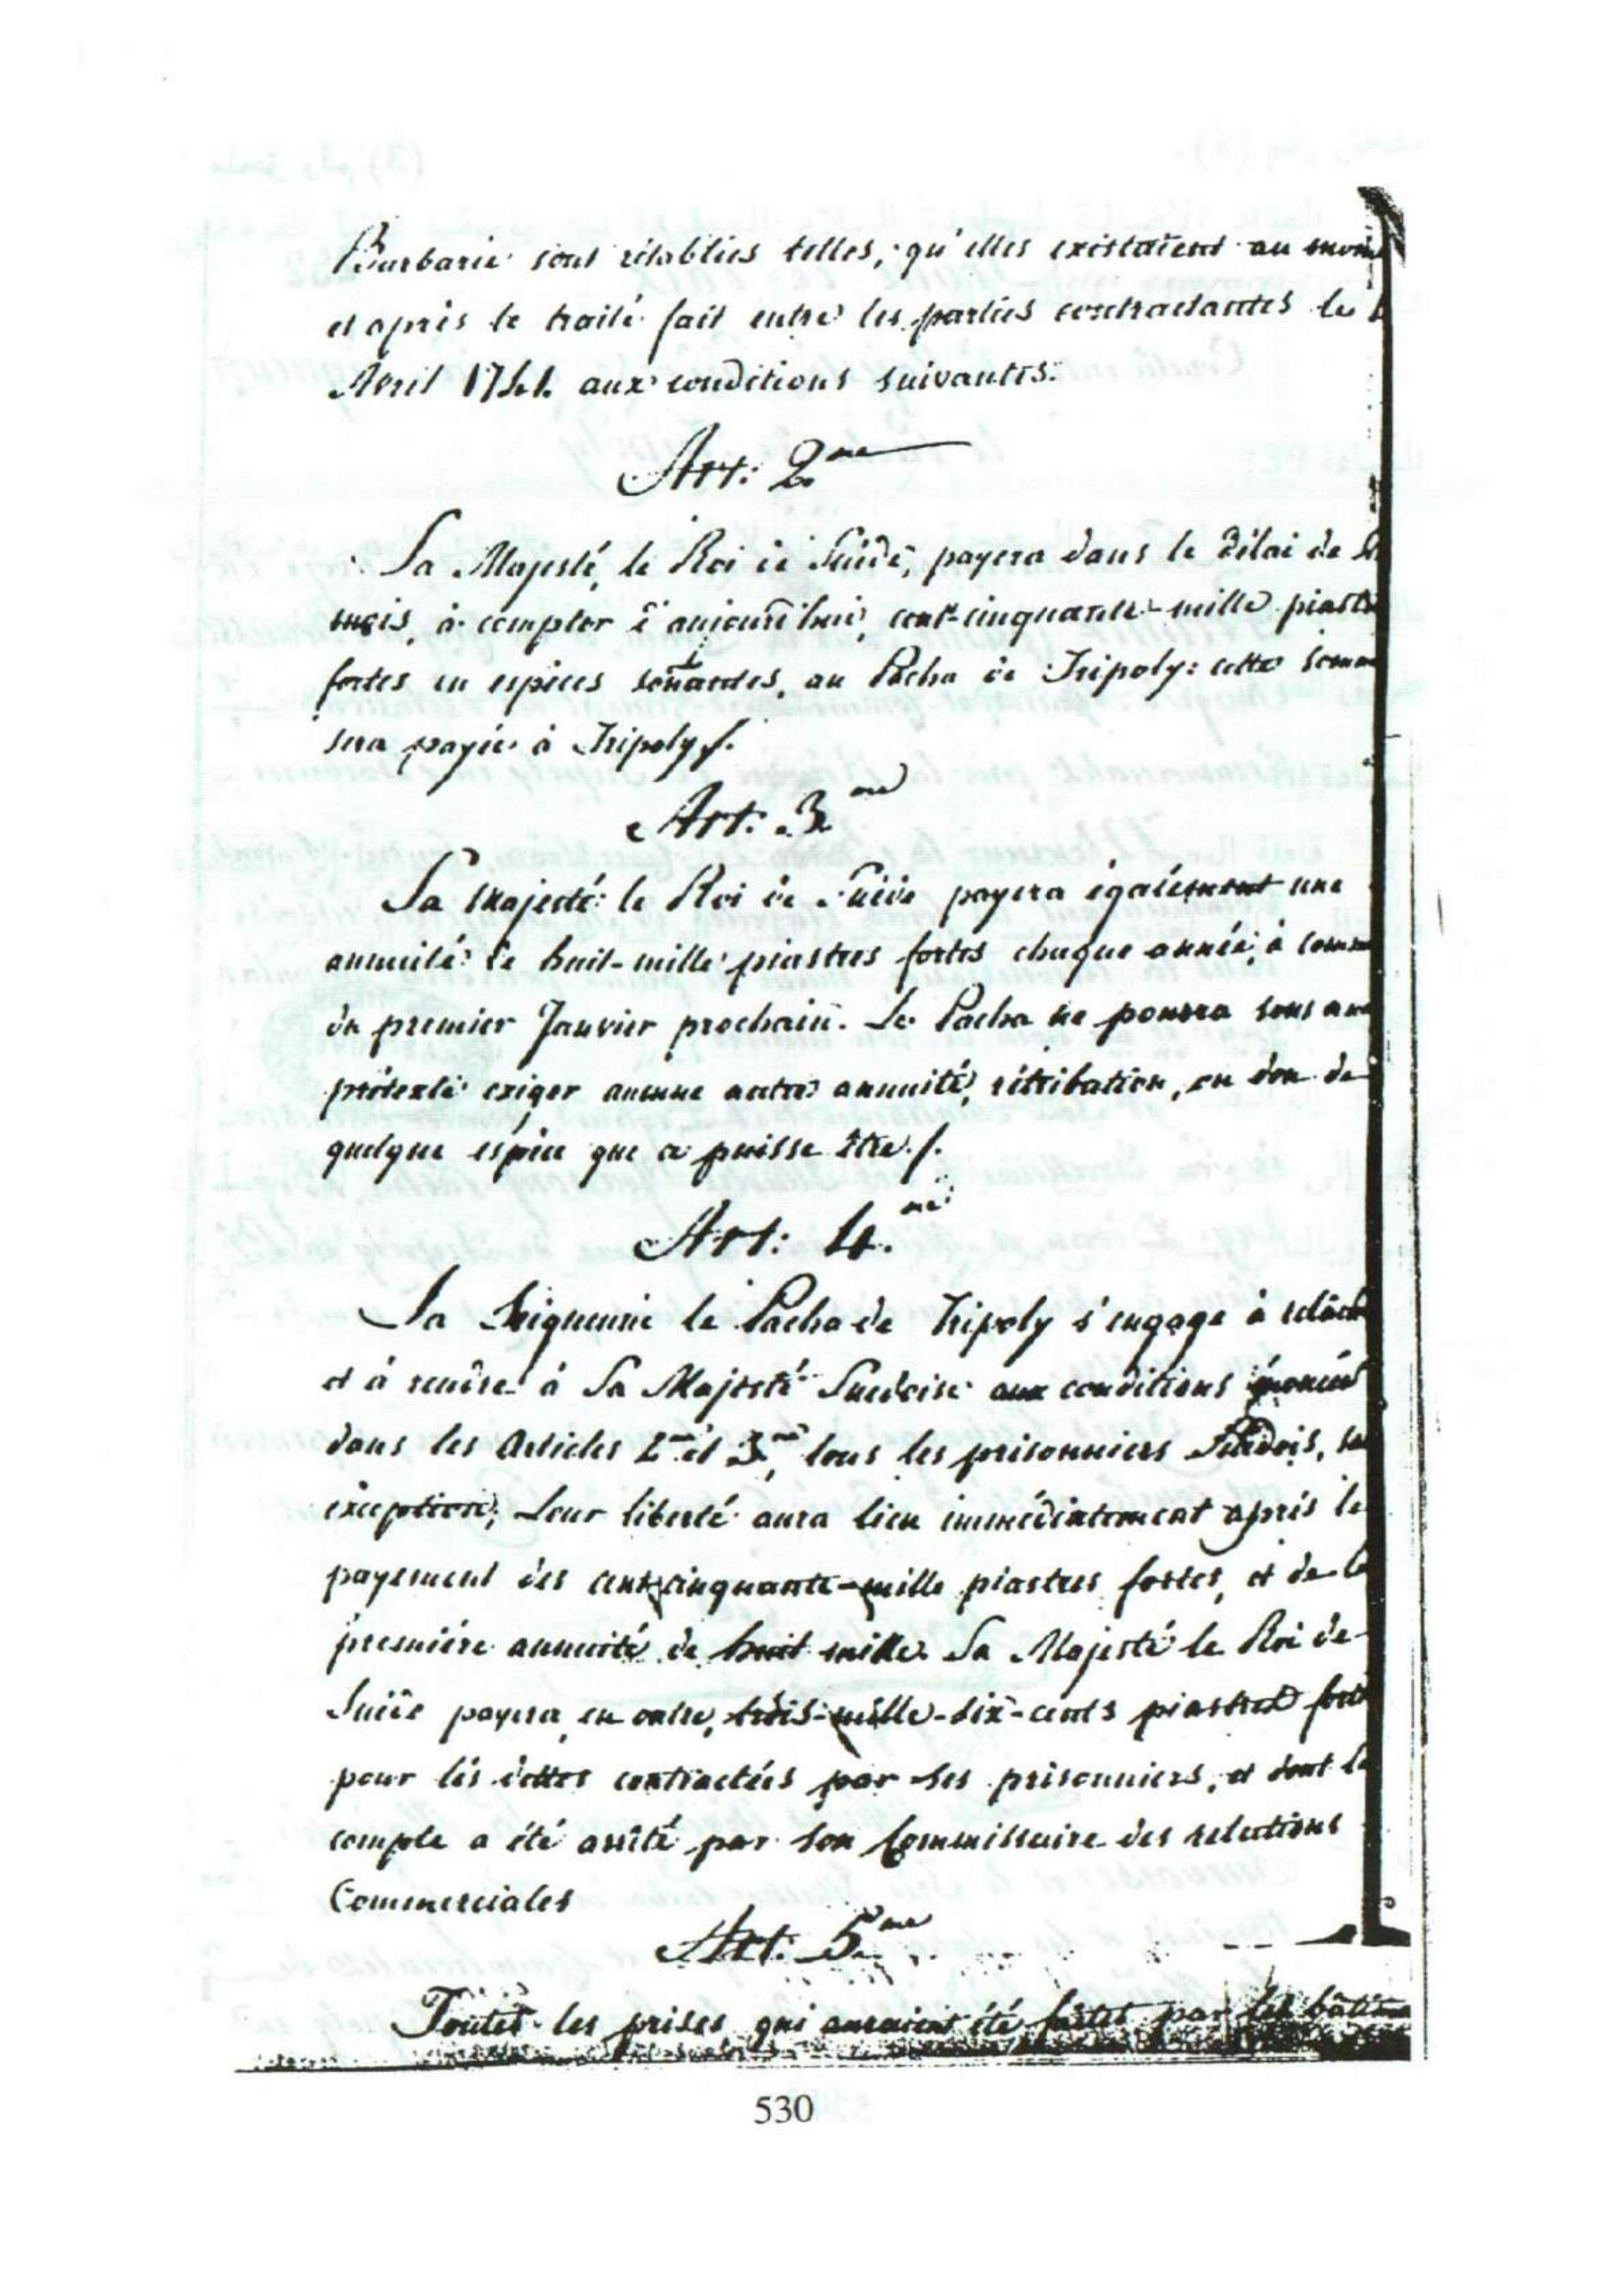 Barbarie sont rétablies telles, qu'elles existaient au mom
et après le traité fait entre les parties contractantes le
Avril 1741. aux conditions suivantes.
Art: 2me
Sa Majesté, le Roi de Suède, payera dans le délai de
mois, à compter d'aujourd'hui, cent-cinquante-mille piastr
fortes en espèces sonantes, au Pacha de Tripoly: cette somm
sera payée à Tripoly./.
Art. 3me
Sa Majesté le Roi de Suède payera également une
annuité de huit-mille piastres fortes chaque année, à comm
du premier Janvier prochain. Le Pacha ne pourra sous auc
prétexte exiger aucune autre annuité, rétribution, ou don de
quelque espèce que ce puisse être./.
Art: 4.me
Sa Seigneurie le Pacha de Tripoly s'engage à relâch
et à rendre à Sa Majesté Suedoise aux conditions énoncées
dans les Articles 2me et 3me, tous les prisonniers Suédois, sa
exception; Leur liberté aura lieu immédiatement après le
payement des cent-cinquante-mille piastres fortes, et de la
première annuité de huit mille. Sa Majesté le Roi de
Suède payera, en outre, trois-mille-dix-cents piastres fort
pour les dettes contractées par ses prisonniers, et dont le
compte a été arrêté par son Commissaire des relations
Commerciales
Art: 5me
Toutes les prises qui auraient été faites par les bâtim
530